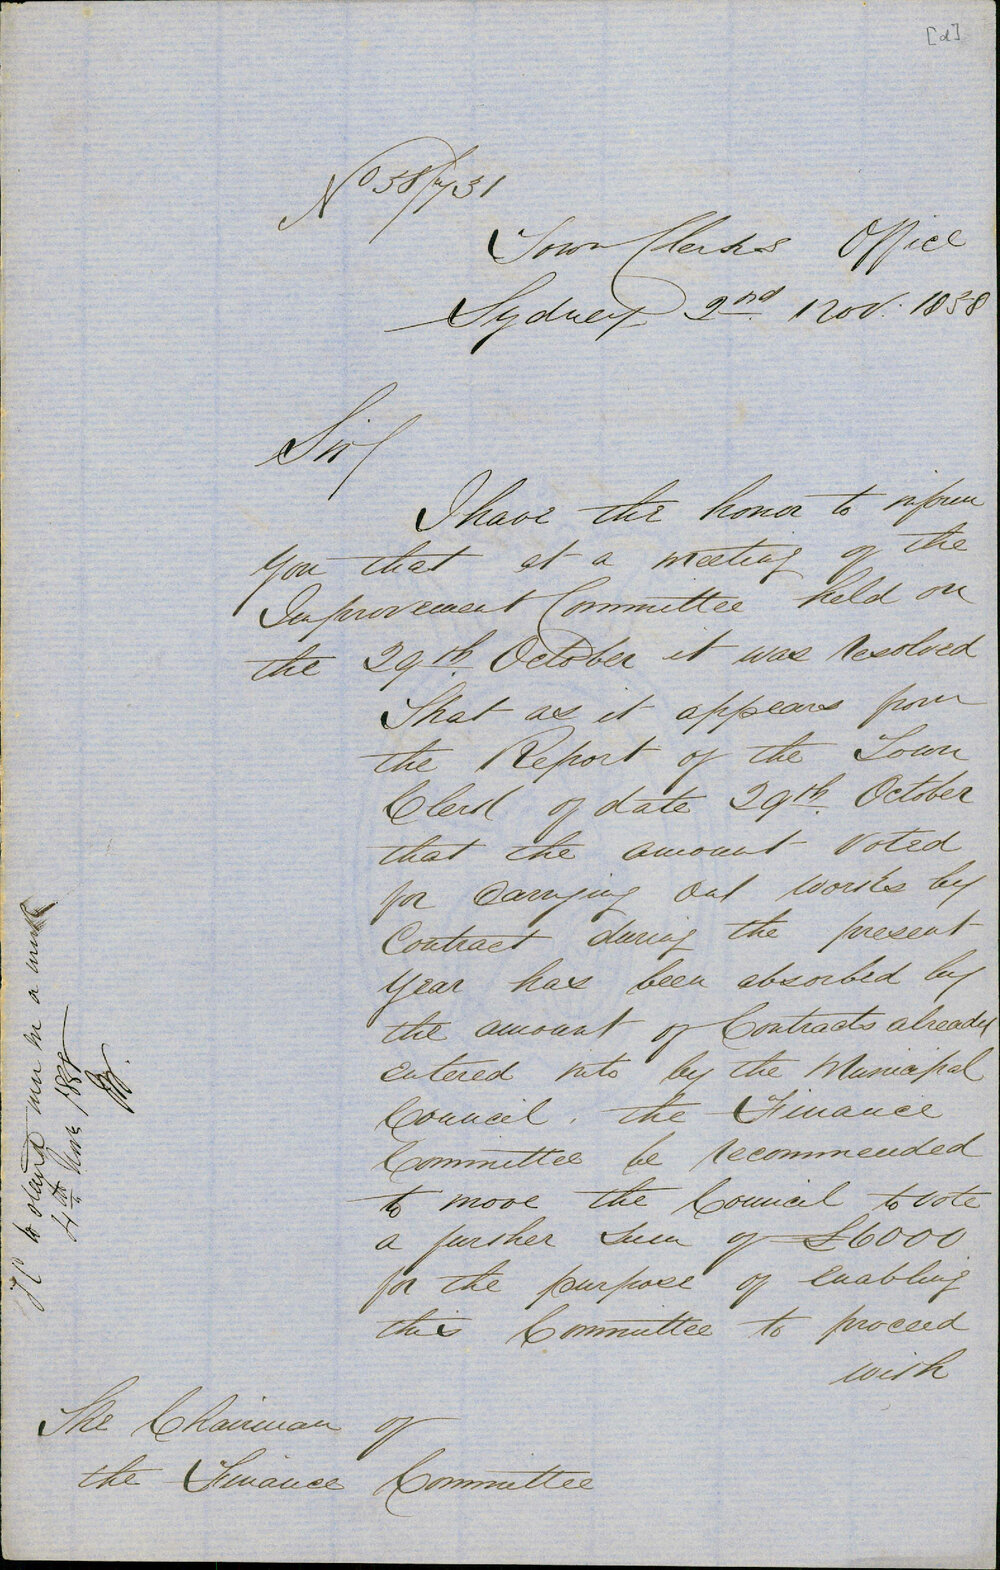 [d]
No 58/731
Town Clerks Office
Sydney 2nd Nov. 1858
Sir/
I have the honor to inform
you that at a meeting of the
Improvement Committee held on
the 29th October it was resolved
That as it appears from
the Report of the Town
Clerk of date 29th October
that the amount voted
for carrying out works by
Contract during the present
year has been absorbed by
the amount of Contracts already
entered into by the Municipal
Council. the Finance
Committee be recommended
to move the Council to vote
a further sum of £6000
for the purpose of enabling
this Committee to proceed
with
The Chairman of
the Finance Committee
to stand over for a
4th Nov 1858